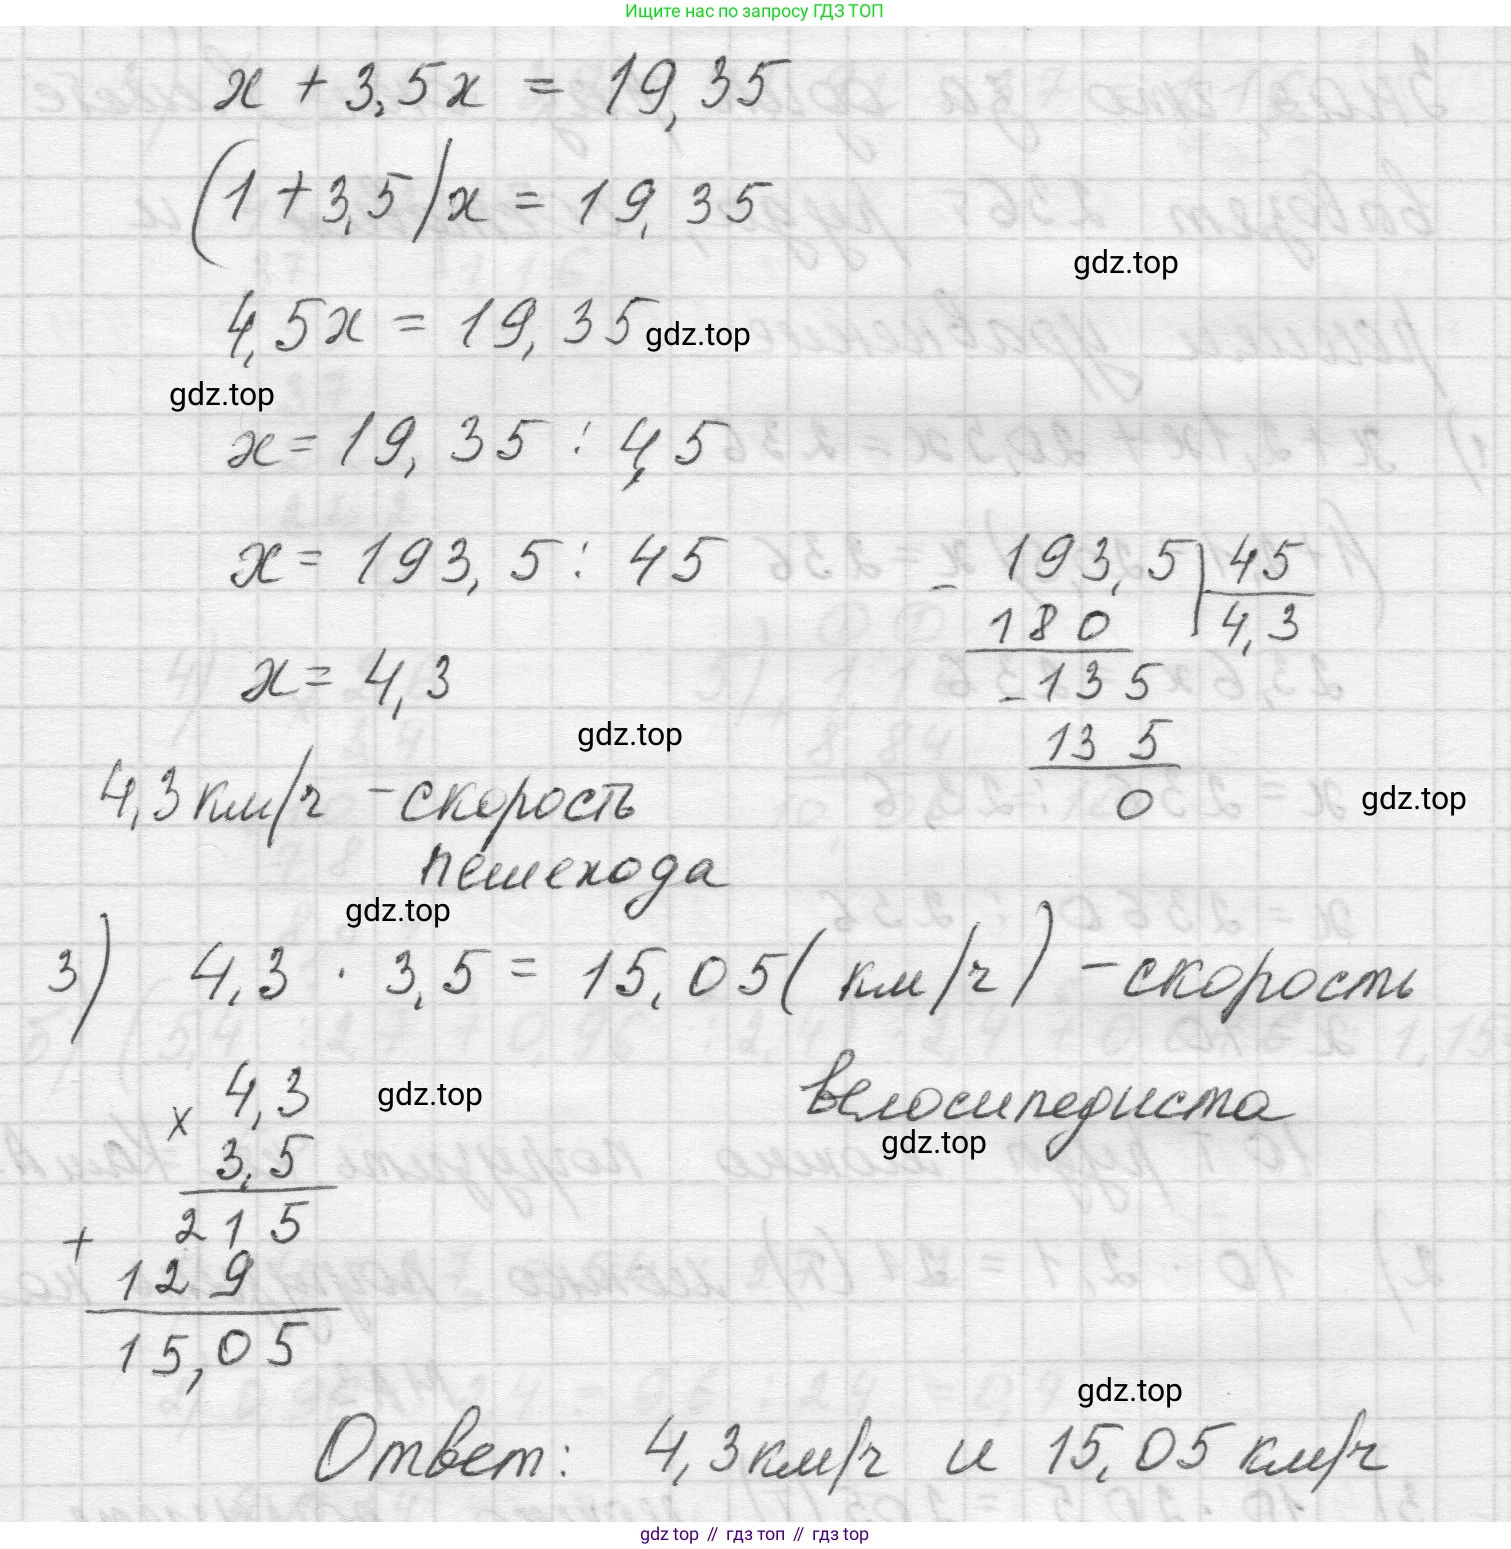 Ищите нас по запросу ГДЗ ТОП
x + 3,5x = 19,35
(1 + 3,5)x = 19,35
gdz.top
4,5x = 19,35
gdz.top
gdz.top
x = 19,35 : 4,5
x = 193,5 : 45
- 193,5 | 45
180 4,3
x = 4,3
- 135
gdz.top
135
4,3 км/ч - скорость
0
gdz.top
пешехода
gdz.top
3) 4,3 · 3,5 = 15,05 (км/ч) - скорость
велосипедиста
gdz.top
x 4,3
gdz.top
3,5
+ 215
129
15,05
gdz.top
Ответ: 4,3 км/ч и 15,05 км/ч
gdz top // гдз топ // гдз top